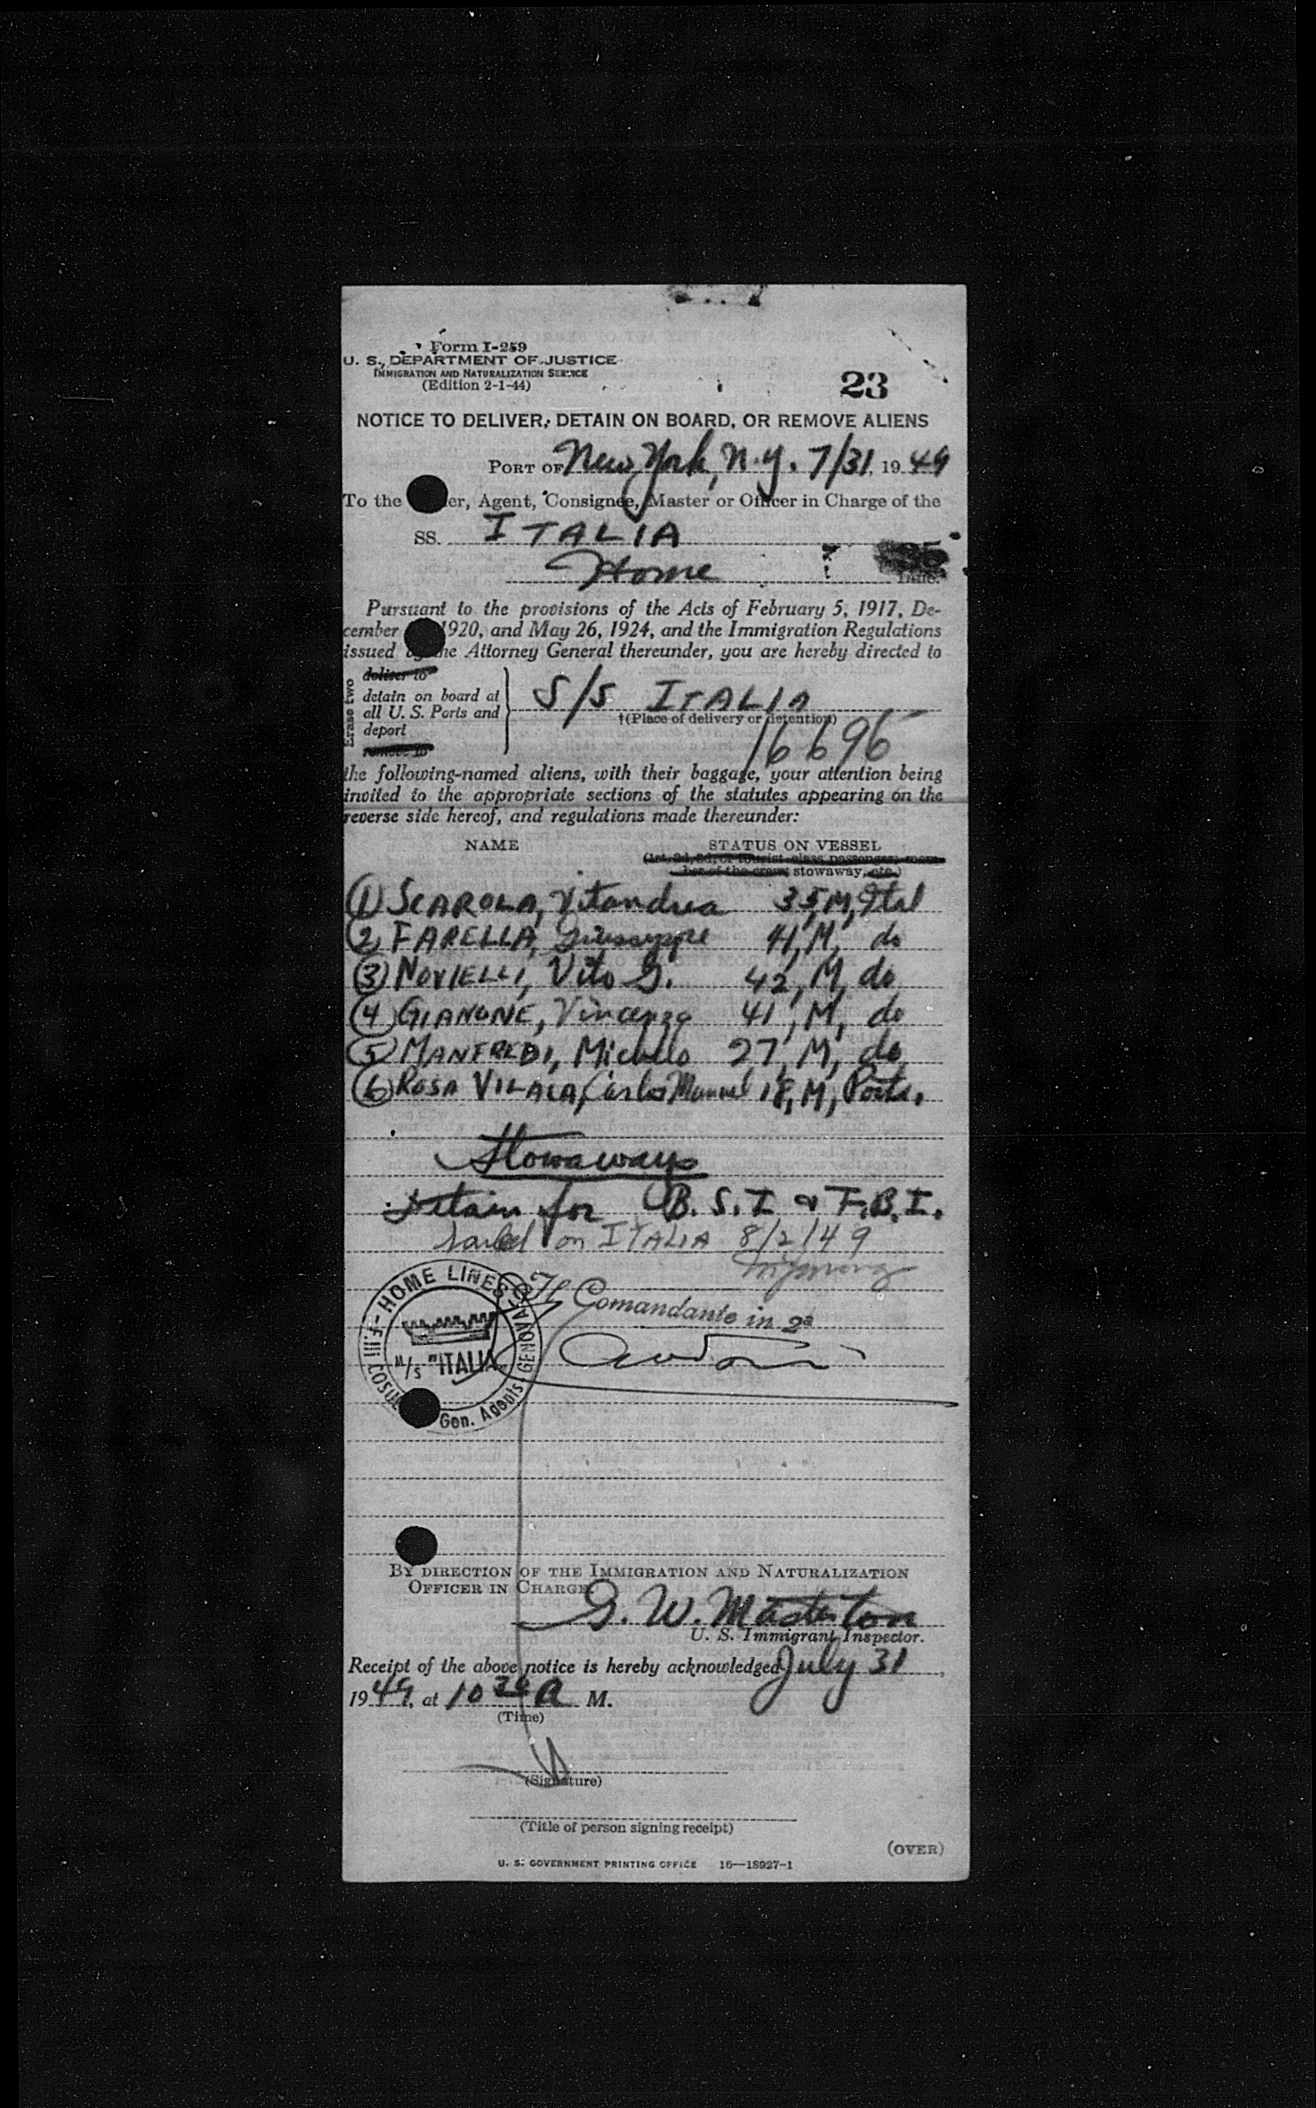 Form I-259
U. S. DEPARTMENT OF JUSTICE
IMMIGRATION AND NATURALIZATION SERVICE
(Edition 2-1-44)
23
NOTICE TO DELIVER, DETAIN ON BOARD, OR REMOVE ALIENS
PORT OF New York, N.Y. 7/31, 19 49
To the er, Agent, Consignee, Master or Officer in Charge of the
SS. ITALIA
Home Line.
Pursuant to the provisions of the Acts of February 5, 1917, De-
cember 1920, and May 26, 1924, and the Immigration Regulations
issued by the Attorney General thereunder, you are hereby directed to
Erase two
deliver to
detain on board at
all U. S. Ports and
deport
remove to
S/S ITALIA
†(Place of delivery or detention)
16696
the following-named aliens, with their baggage, your attention being
invited to the appropriate sections of the statutes appearing on the
reverse side hereof, and regulations made thereunder:
NAME STATUS ON VESSEL
(1st, 2d, 3d, or tourist class passenger, mem-
ber of the crew, stowaway, etc.)
(1) SCAROLA, Vitandrea 35, M, Ital
(2) FARELLA, Giuseppe 41, M, do
(3) NOVIELLI, Vito G. 42, M, do
(4) GIANONE, Vincenzo 41, M, do
(5) MANFREDI, Michele 27, M, do
(6) ROSA VILACA, Carlos Manuel 18, M, Port.
Stowaways
Detain for B.S.I. & F.B.I.
Sailed on ITALIA 8/2/49
HOME LINES - GENOVA
F.lli COSUL Gen. Agents
M/s "ITALIA"
Il Comandante in 2ª
BY DIRECTION OF THE IMMIGRATION AND NATURALIZATION
OFFICER IN CHARGE
G. W. Masterton
U. S. Immigrant Inspector.
Receipt of the above notice is hereby acknowledged July 31,
19 49, at 10 30 A M.
(Time)
(Signature)
(Title of person signing receipt)
(OVER)
U. S. GOVERNMENT PRINTING OFFICE 16—18927-1